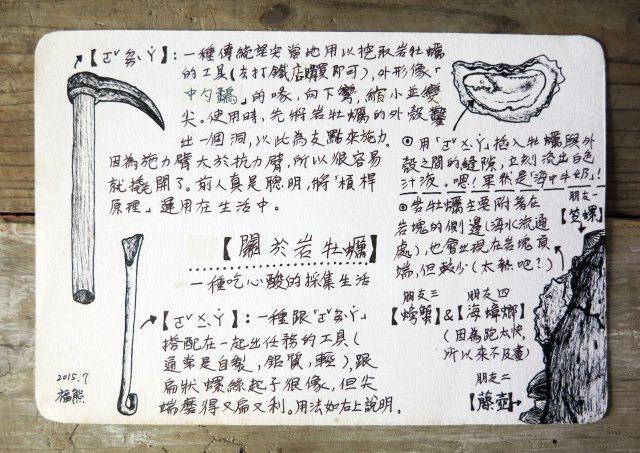 【ㄛˇㄠˊㄚˊ】:一種傳統望安當地用以挖取岩牡蠣
的工具(去打鐵店購買即可),外形像「
中勺鷸」的喙,向下彎,縮小並變
尖。使用時,先將岩牡蠣的外殼鑿
出一個洞,以此為支點來施力。
因為施力臂大於抗力臂,所以很容易
就撬開了。前人真是聰明,將「槓桿
原理」運用在生活中。
●用「ㄛˇㄨˊㄚˊ」插入牡蠣與外
殼之間的縫隙,立刻流出白色
汁液。嗯!果然是「海中牛奶」!
●岩牡蠣主要附著在
岩塊的側邊(海水流通
處),也會出現在岩塊頂
端,但較少(太熱吧?)
朋友一
【笠螺】
【關於岩牡蠣】
一種吃心酸的採集生活
朋友三 朋友四
【螃蟹】&【海蟑螂】
(因為跑太快,
所以來不及畫)
朋友二
【藤壺】
【ㄛˇㄨˊㄚˊ】:一種跟「ㄛˇㄠˊㄚˊ」
搭配在一起出任務的工具(
通常是自製,鋁質,輕),跟
扁狀螺絲起子很像,但尖
端磨得又扁又利。用法如右上說明.
2015.7